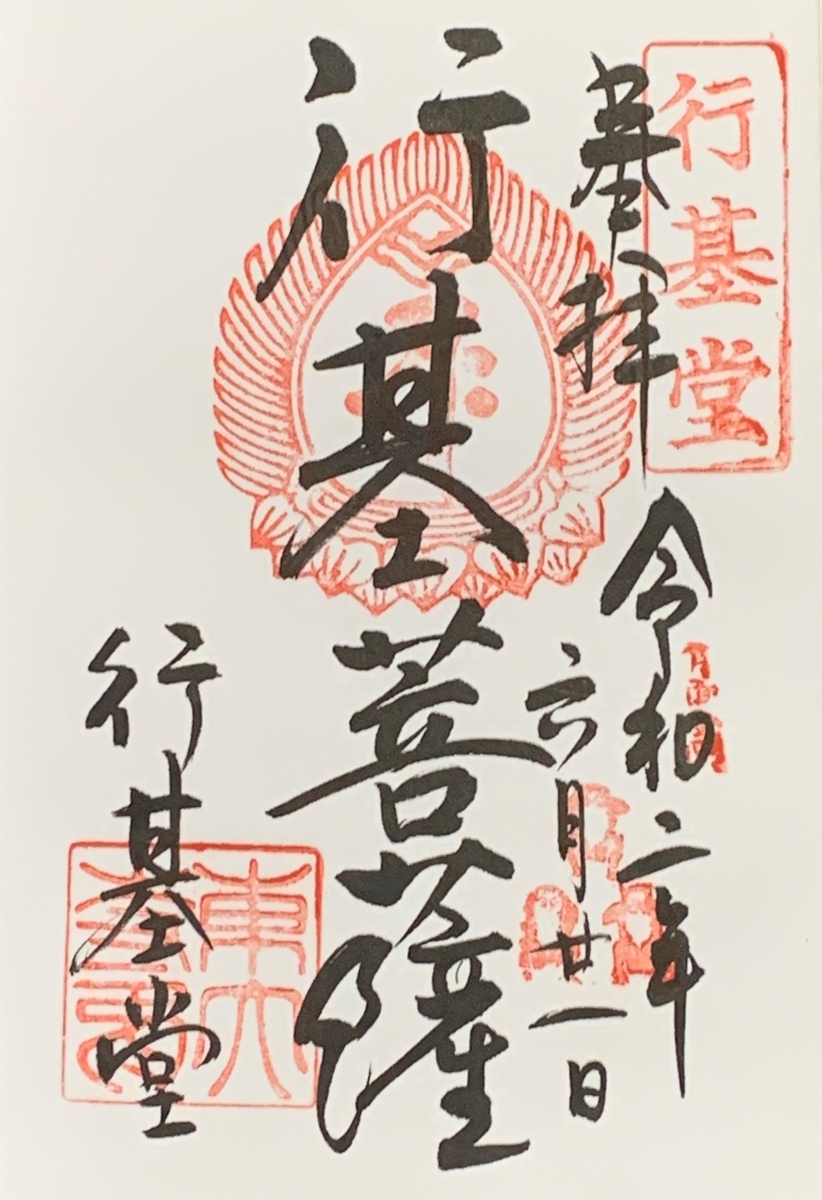 行基堂
奉拝
令和二年
六月廿一日
行基菩薩
行基堂
東大